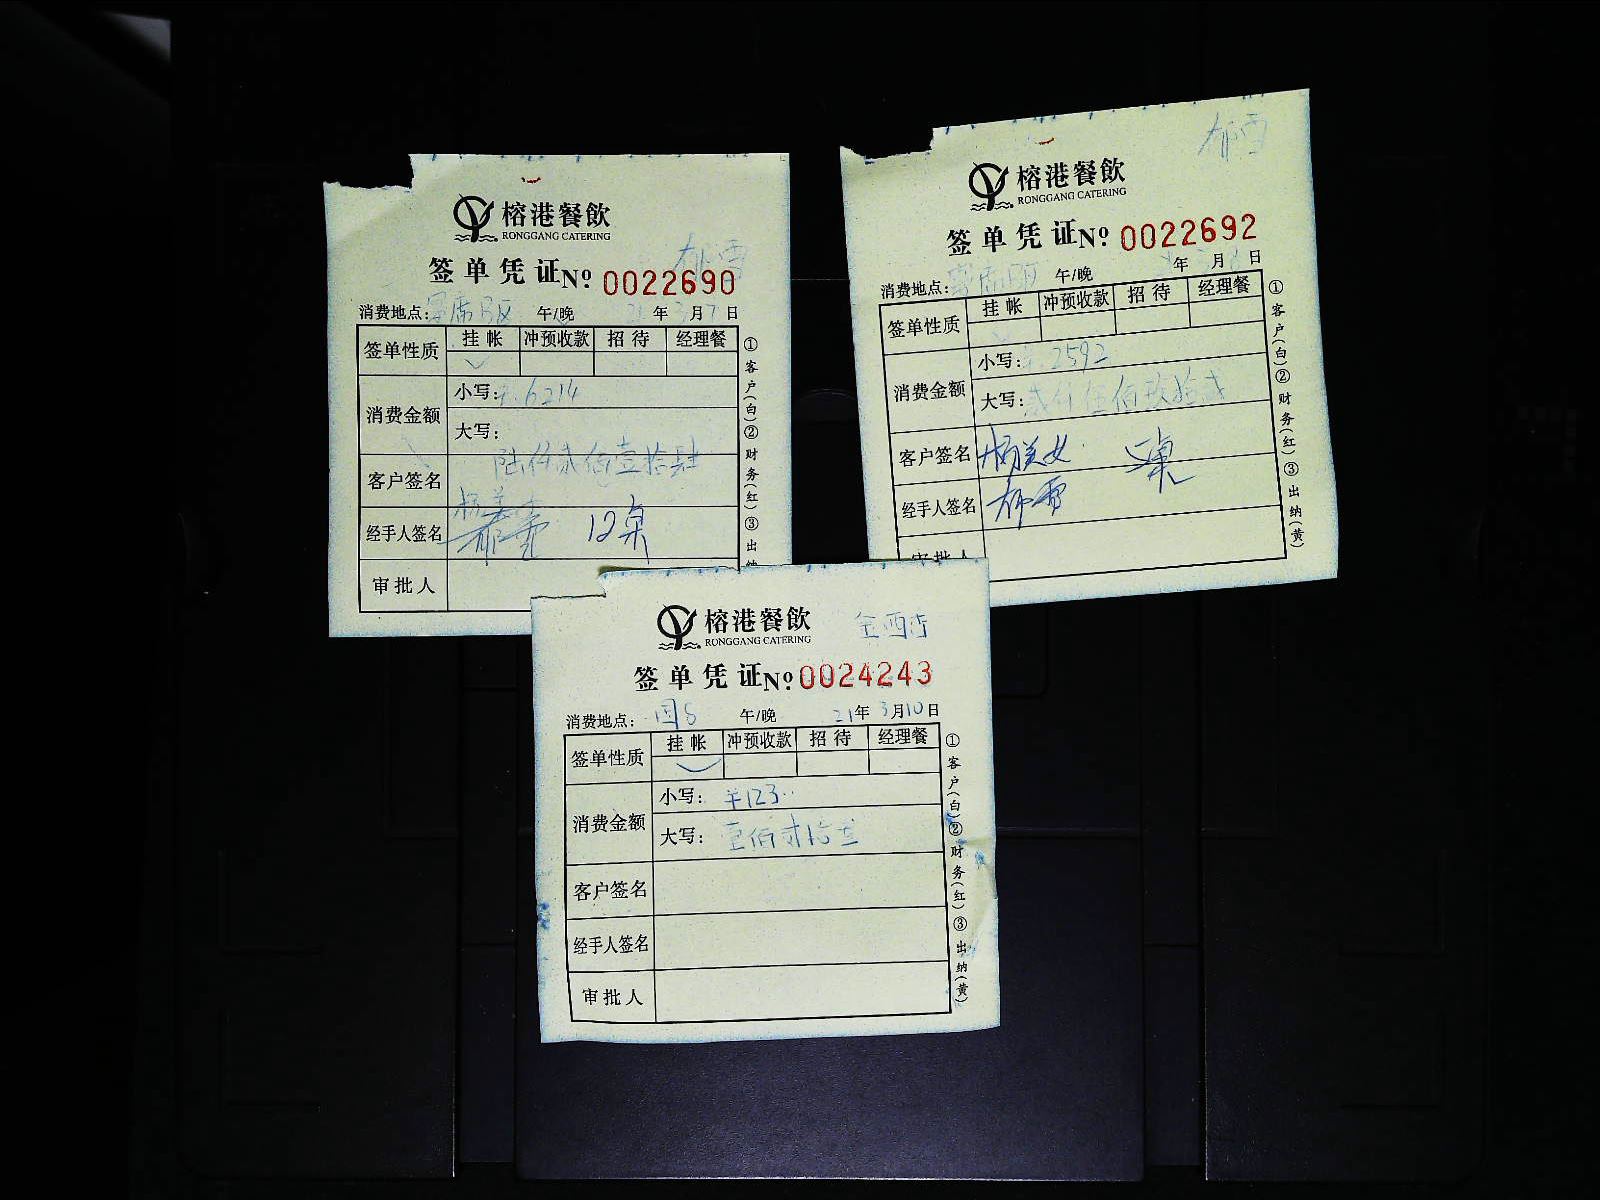 榕港餐飲
RONGGANG CATERING
签单凭证 № 0022690
消费地点: 午/晚 21年3月7日
签单性质 挂帐 冲预收款 招待 经理餐
消费金额
小写: ¥6214
大写:
陆仟贰佰壹拾肆
客户签名
经手人签名 12桌
审批人
①客户(白)②财务(红)③出
郁雪
榕港餐飲
RONGGANG CATERING
签单凭证 № 0022692
消费地点: 午/晚 年 月 日
签单性质 挂帐 冲预收款 招待 经理餐
消费金额
小写: ¥2592
大写: 贰仟伍佰玖拾贰
客户签名 杨美女
经手人签名 郁雪
审批人
①客户(白)②财务(红)③出纳(黄)
榕港餐飲
RONGGANG CATERING
签单凭证 № 0024243
消费地点: 午/晚 21年3月10日
签单性质 挂帐 冲预收款 招待 经理餐
消费金额
小写: ¥123
大写: 壹佰贰拾叁
客户签名
经手人签名
审批人
①客户(白)②财务(红)③出纳(黄)